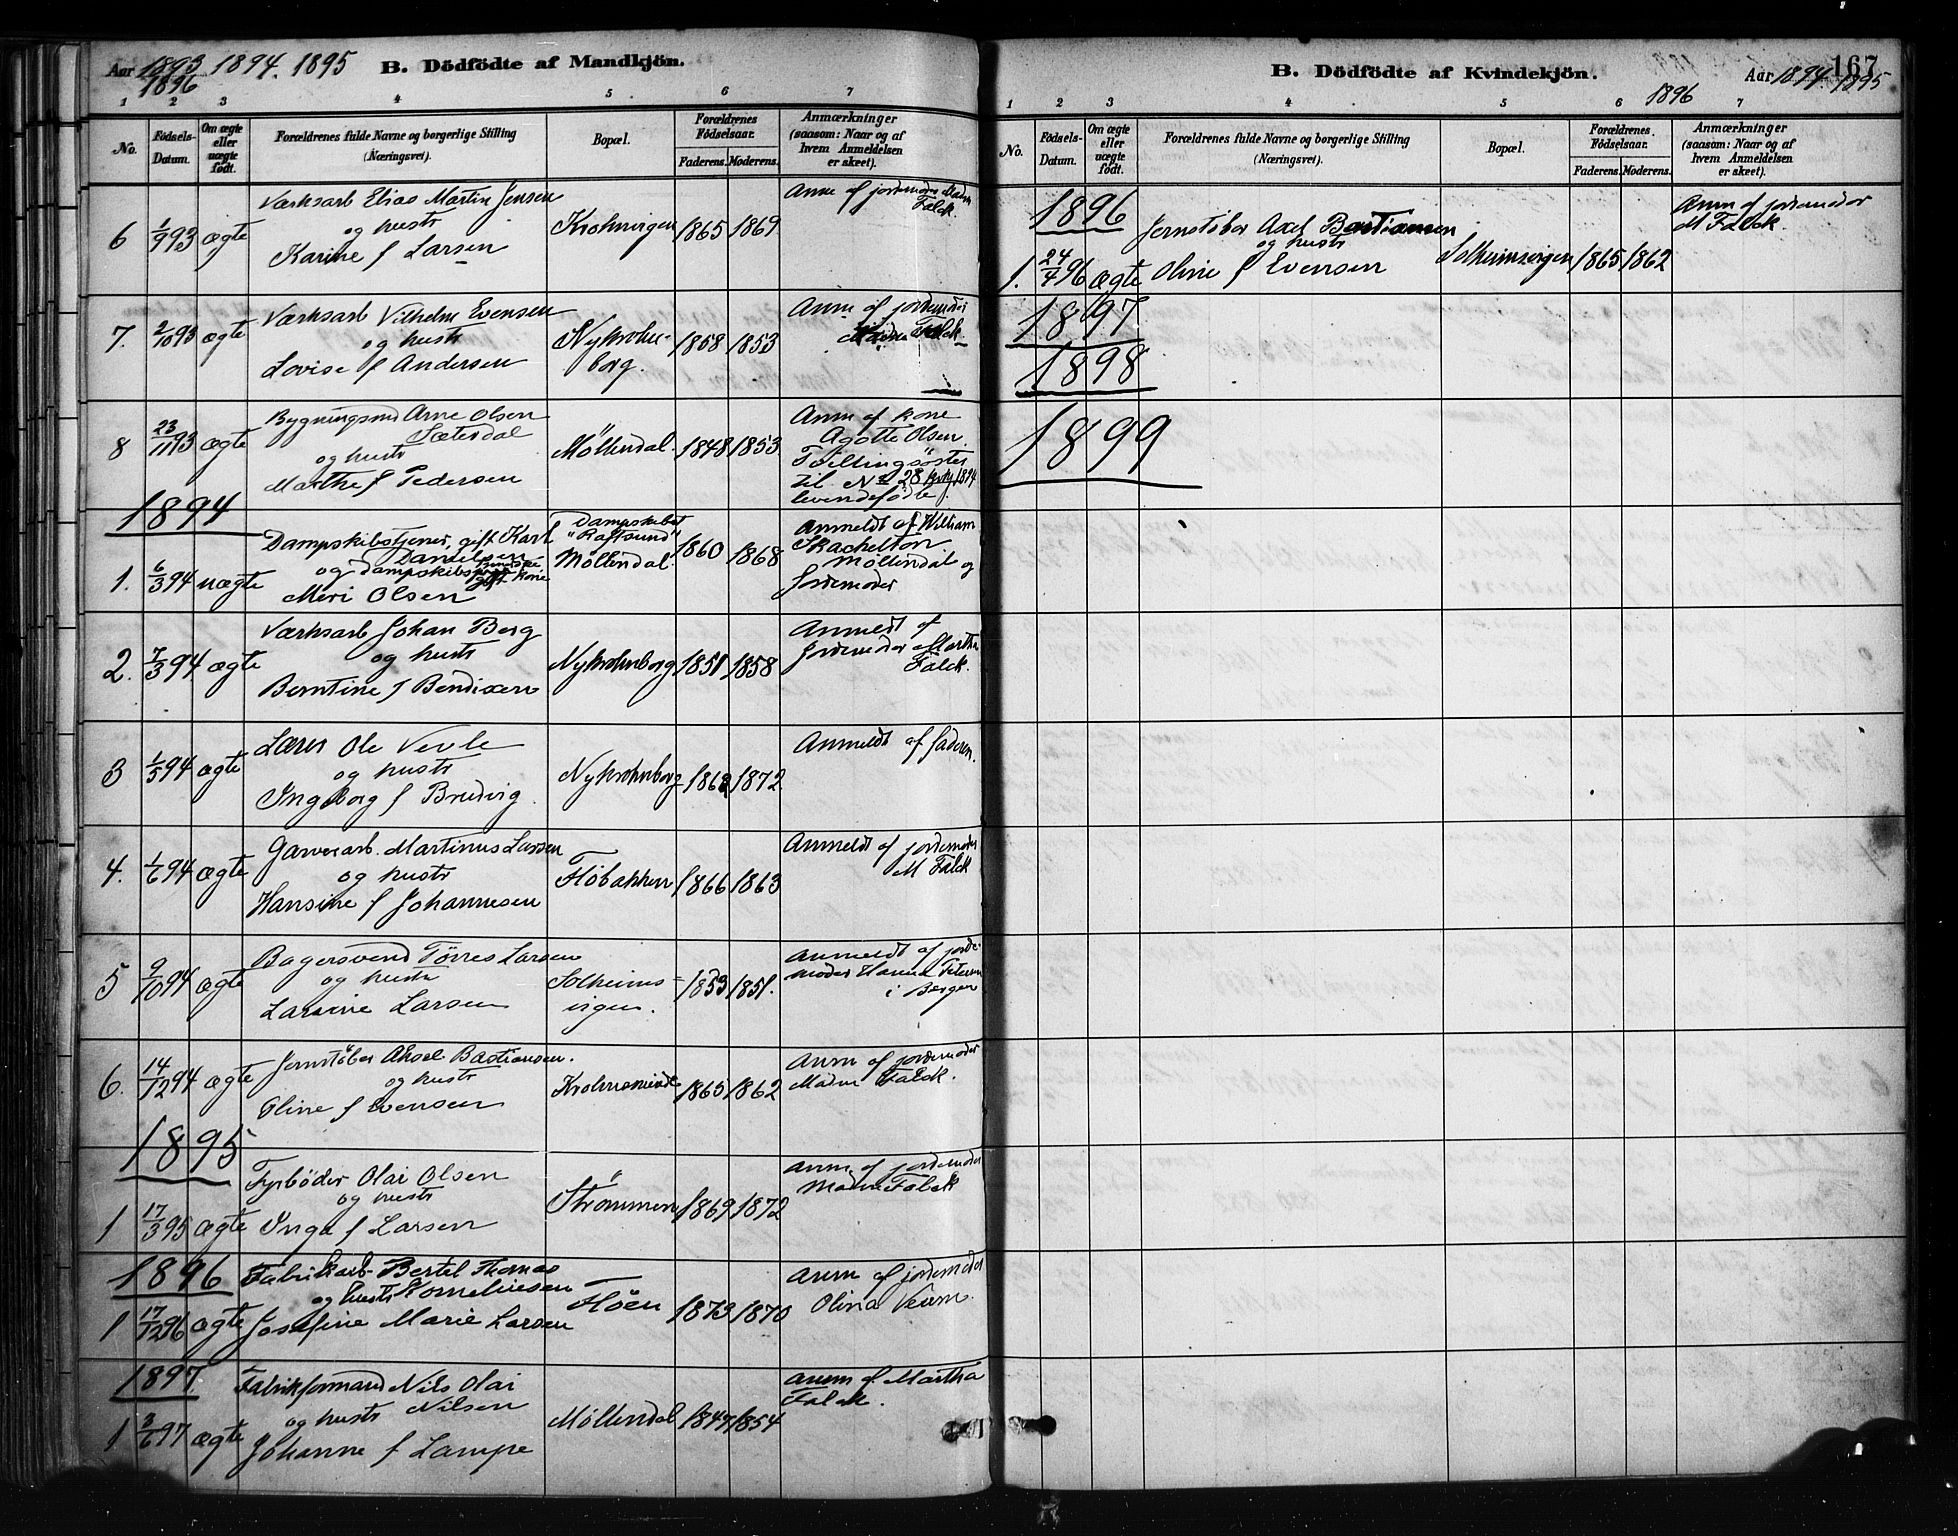 Aar 1893 1894. 1895
1896
B. Dödfödte af Mandkjön.
1 2 3 4 5 6 7
No.
Födsels-Datum.
Om ægte eller uægte födt.
Forældrenes fulde Navne og borgerlige Stilling
(Næringsvei).
Bopæl.
Forældrenes Födselsaar.
Faderens. Moderens.
Anmærkninger
(saasom: Naar og af
hvem Anmeldelsen
er skeet).
Værksarb Elias Martin Jensen
og hustr
Karine f Larsen
6 1/9 93 ægte
1865 1869
Anm af jordemoder
Falck.
Værksarb Vilhelm Evensen
og hustr
Lovise f Andersen
7. 2/10 93 ægte
Nykrohnborg.
1858 1853
Anm af jordemoder
Falck
Bygningssnd Arne Olsen
Sæterdal
og hustr
Marthe f Pedersen
8 23/11 93 ægte
Möllendal.
1848 1853
Anm af kone
Agotte Olsen.
Tvillingsöster
til No 28 1894
levendefödte.
1894
Dampskibstjener, gift Karl
Danielsen
og dampskibs
gift kone
Meri Olsen
1. 6/3 94 uægte
Dampskibet
"Raftsund"
Möllendal.
1860 1868
Anmeldt af William
Möllendal og
Jordemoder
Værksarb Johan Berg
og hustr
Berntine f Bendixen
2. 7/3 94 ægte
Nykrohnborg
1851 1858
Anmeldt af
Jordemoder Martha
Falck.
Lærer Ole Nevle
og hustr
Ingeborg f Brudvig.
3 1/5 94 ægte
Nykrohnborg
1868 1872.
Anmeldt af faderen.
Garverarb. Martinus Larsen
og hustr
Hansine f Johannesen
4. 1/6 94 ægte
Flöbakken
1866 1863
Anmeldt af jordemoder
M Falck
Bagersvend Tørres Larsen
og hustr
Larsine Larsen
5 9/10 94 ægte
1853 1851.
Anmeldt af jordemoder
i Bergen
Jernstöber Aksel Bastiansen.
og hustr
Oline f Evensen
6. 14/12 94 ægte
Krohnsminde
1865 1862
Anm af jordemoder
Falck.
1895
Fyrböder Olai Olsen
og hustr
Inga f Larsen
1 17/3 95 ægte
Strömmen
1869 1872
Anm af jordemoder
Falck
1896
Fabrikarb. Bertel Thomas
og hustr Kornelinsen
Josefine Marie Larsen
1 17/12 96 ægte
Flöen
1873 1870
Anm af jordemoder
Olina Veum.
1897
Fabrikformand Nils Olai
og hustr Nilsen
Johanne f Lampe
1 3/6 97 ægte
Möllendal
1847 1854
Anm af Martha
Falck.
167
B. Dödfödte af Kvindekjön.
Aar 1894. 1895
1896
1 2 3 4 5 6 7
No.
Födsels-Datum.
Om ægte eller uægte födt.
Forældrenes fulde Navne og borgerlige Stilling
(Næringsvei).
Bopæl.
Forældrenes Födselsaar.
Faderens. Moderens.
Anmærkninger
(saasom: Naar og af
hvem Anmeldelsen
er skeet).
1896
Jernstöber Axel Bastiansen
og hustr
Oline f Evensen
1. 24/7 96 Ægte
1865 1862
Anm af jordemoder
M Falck.
1897
1898
1899